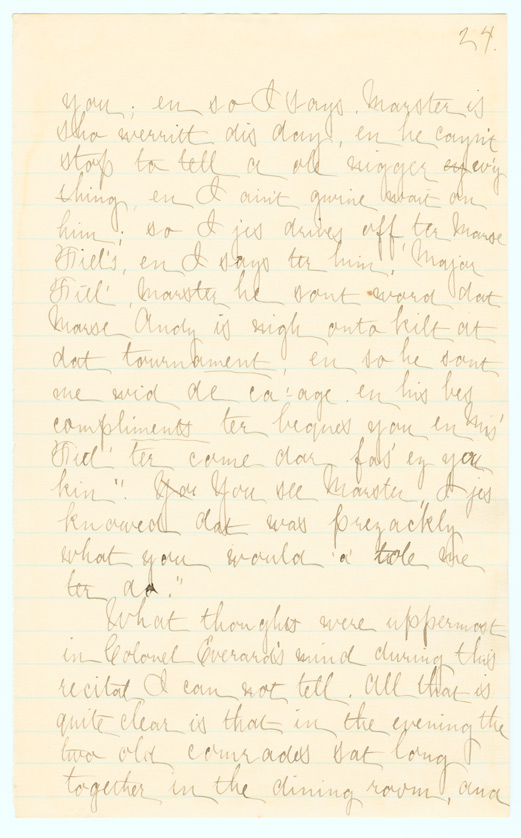 24.
you; en so I says. Marster is
sho werritt dis day, en he cayn't
stop to tell a ole nigger ev'y
thing, en I ain't gwine wait on
him; so I jes drives off ter Marse
Fiel's, en I says ter him, "Major
Fiel' Marster he sont word dat
Marse Andy is nigh onto kilt at
dat tournament, en so he sont
me wid de ca'age en his bes
compliments ter beques you en Mis'
Fiel' ter come dar fas' ez you
kin". You see Marster, I jes
knowed dat was prezackly
what you would 'a' tole me
ter do."
What thoughts were uppermost
in Colonel Everard's mind during this
recital I can not tell. All that is
quite clear is that in the evening the
two old comrades sat long
together in the dining room, and